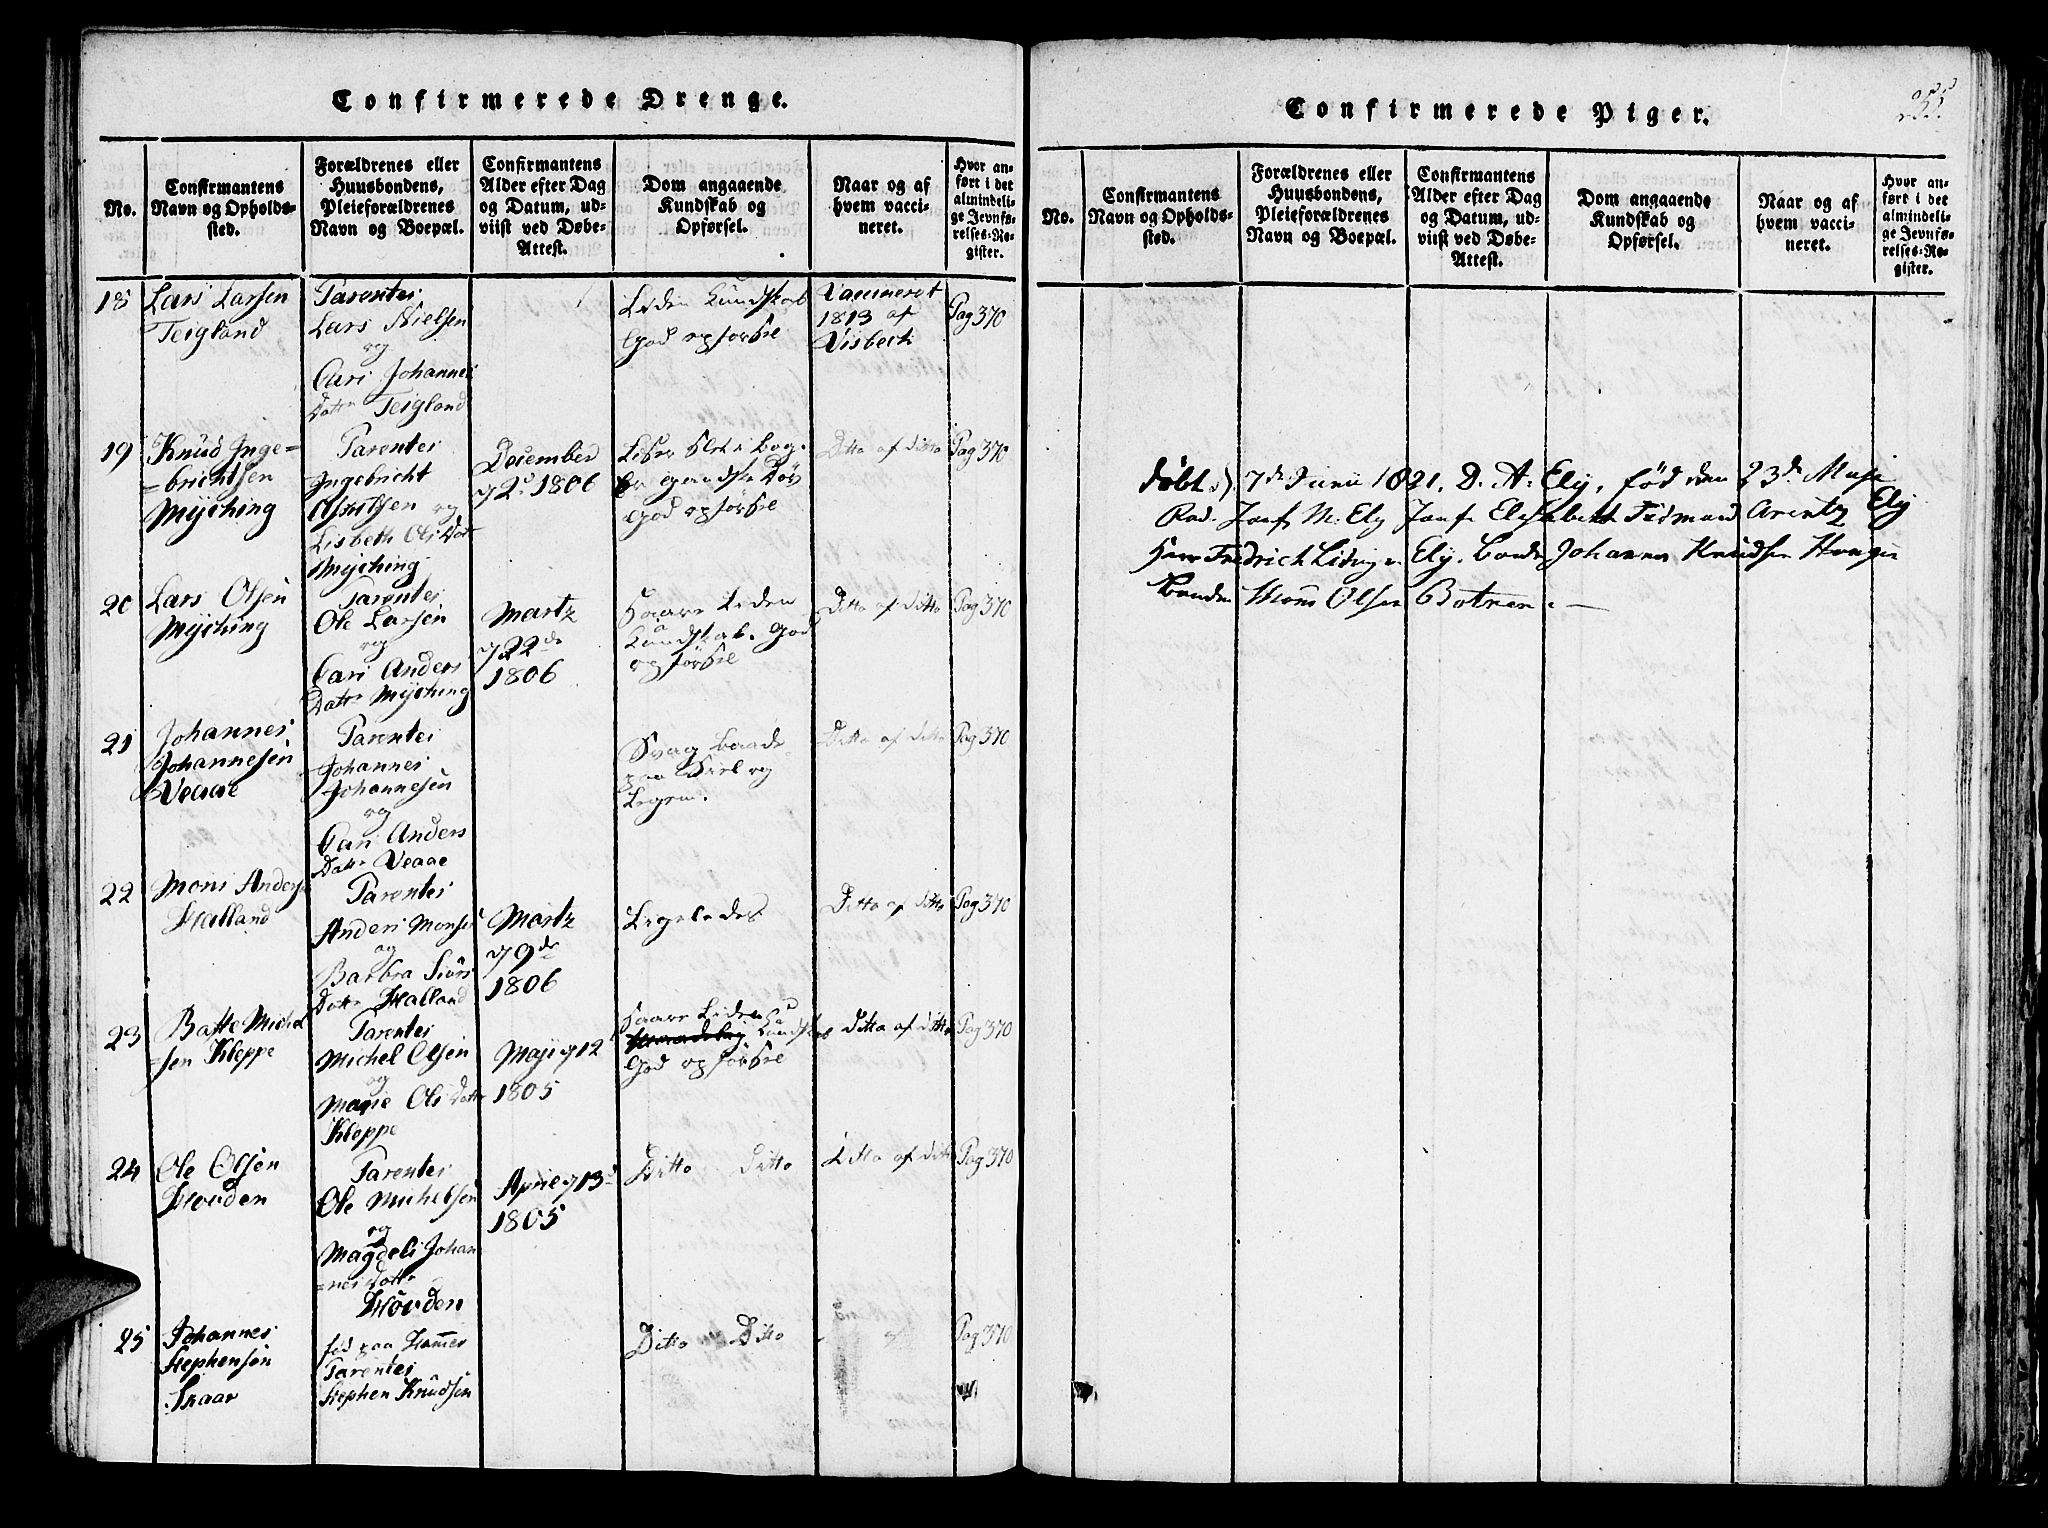 Confirmerede Drenge.
No.
Confirmantens
Navn og Opholds-
sted.
Forældrenes eller
Huusbondens,
Pleieforældrenes
Navn og Boepæl.
Confirmantens
Alder efter Dag
og Datum, ud-
viist ved Døbe-
Attest.
Dom angaaende
Kundskab og
Opførsel.
Naar og af
hvem vacci-
neret.
Hvor an-
ført i det
almindeli-
ge Jevnfø-
relses-Re-
gister.
18
Lars Larsen
Teigland
Parentes
Lars Nielsen
og
Cari Johannes
Datter Teigland
Liden Kundskab
God opførsel
Vaccineret
1813 af
Visbech
Pag 370
19
Knud Inge=
=brichtsen
Myching
Parentes
Ingebricht
og
Lisbeth Ols Datr
Myching
December
1806
Læser slet i Bog.
Er gandske Døv
God opførsel
Ditto af ditto
Pag 370
20
Lars Olsen
Myching
Parentes
Ole Larsen
og
Cari Anders
Datter Myching
Martz
22de
1806
Saare Liden
Kundskab. God
opførsel
Ditto af ditto
Pag 370
21
Johannes
Johannesen
Veaae
Parentes
Johannes
Johannesen
og
Cari Anders
Datter Veaae
Svag baade
paa Siel og
Legem.
Ditto af ditto
Pag 370
22
Mons Anders
Halland
Parentes
Anders Monsen
og
Barbra Siurs
Datter Halland
Martz
9de
1806
Ligeledes
Ditto af ditto
Pag 370
23
Batte Michel
=sen Kleppe
Parentes
Michel Olsen
og
Marie Ols Datter
Kleppe
Maji 12
1805
Saare Liden
Kundskab
God opførsel
Ditto af ditto
Pag 370
24
Ole Olsen
Hovden
Parentes
Ole Michelsen
og
Magdeli Johan
=nes Datter
Hovden
April 13
1805
Ditto Ditto
Ditto af ditto
Pag 370
25
Johannes
Stephensen
Skaar
fød paa
Parentes
Stephen Knudsen
Ditto Ditto
Pag 370
Confirmerede Piger.
255.
No.
Confirmantens
Navn og Opholds-
sted.
Forældrenes eller
Huusbondens,
Pleieforældrenes
Navn og Boepæl.
Confirmantens
Alder efter Dag
og Datum, ud-
viist ved Døbe-
Attest.
Dom angaaende
Kundskab og
Opførsel.
Naar og af
hvem vacci-
neret.
Hvor an-
ført i det
almindeli-
ge Jevnfø-
relses-Re-
gister.
Døbt 7de Junii 1821. D. A. Ely, fød den 23de Maji
Jomf M. Ely Jomfr Elisabeth Arentz Ely
Herr Fredrich Ely. Bonde Johannes Knudsen
Bonden Mons Olsen Botnen.